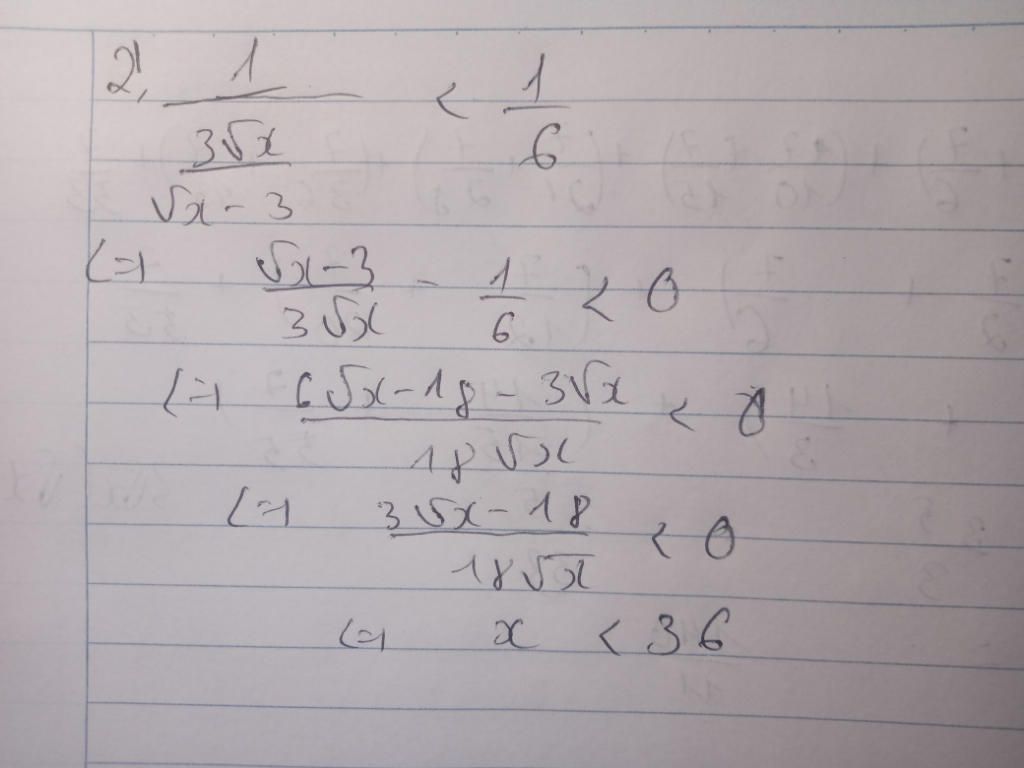 2, 1/((3√x)/(√x - 3)) < 1/6
(=) (√x - 3)/(3√x) - 1/6 < 0
(=) (6√x - 18 - 3√x)/(18√x) < 0
(=) (3√x - 18)/(18√x) < 0
(=) x < 36